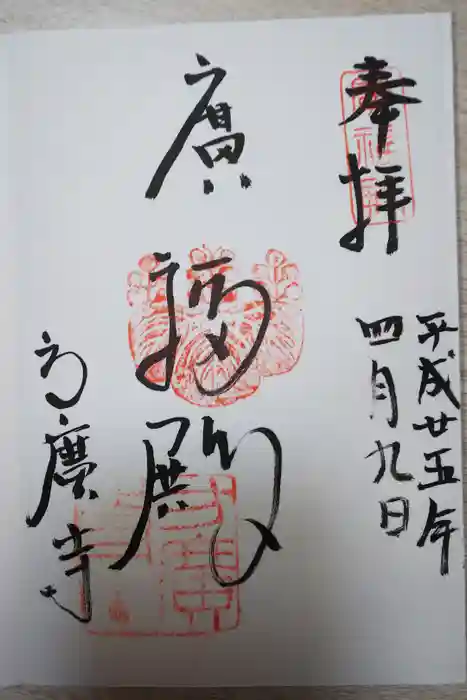 奉拝
平成廿五年
四月九日
廣福殿
高廣寺